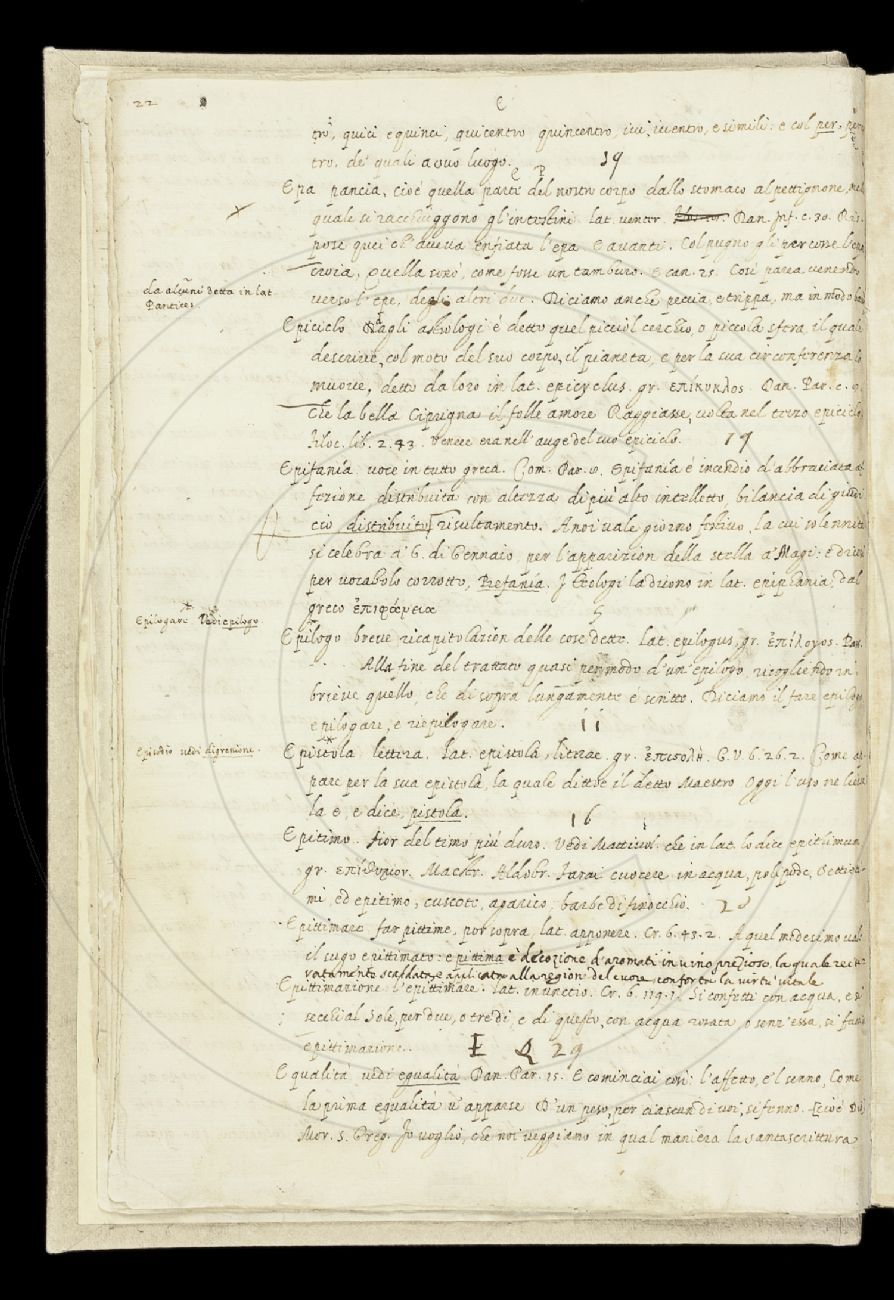 22 E
tro, quici e quinci, quicentro quincentro, ivi, ivientro, e simili: e col per. per
tro, de' quali a suo luogo. 19
E P
Epa pancia, cioè quella parte del nostro corpo dallo stomaco al pettignone, nel
quale si racchiuggono gl'intestini. lat. venter. Dan. Inf. c. 30. Ris
pose quei ch' aveva enfiata l'epa. E avanti. Col pugno gli percosse l'epa
croia, Quella sonò, come fosse un tamburo. E can. 25. Così parea venendo
da alcuni detta in lat.
Pantices
verso l'epe, degli altri due. Diciamo anche peccia, e trippa, ma in modo
Epiciclo Dagli astrologi è detto quel picciol cerchio, o piccola sfera, il quale
descrive, col moto del suo corpo, il pianeta, e per la sua circonferenza lo
muove, detto da loro in lat. epicyclus. gr. ἐπίκυκλος. Dan. Par. c.
Che la bella Ciprigna il folle amore Raggiasse, volta nel terzo epiciclo,
Filoc. lib. 2. 43. Venere era nell' auge del suo epiciclo. 17
Epifania. voce in tutto greca. Com. Par. Epifania è incendio d'abbraciata af
fezione distribuita con altezza di più alto intelletto bilancia di giudi
cio distribuito risultamento. Anoi vale giorno festivo, la cui solennità
si celebra a' 6. di Gennaio, per l'apparizion della stella a' Magi: e dicesi
per vocabolo corrotto, Befania. I Teologi la dicono in lat. epiphania, dal
greco ἐπιφάνεια 5
Epilogare Vedi epilogo
Epilogo breve ricapitolazion delle cose dette. Lat. epilogus, gr. ἐπίλογος. Pas.
Alla fine del trattato quasi per modo d'un epilogo, ricogliendo in
brieve quello, che di sopra lungamente è scritto. Diciamo il fare epilogo
epilogare, e riepilogare. 11
Episodio vedi digressione.
Epistola lettera. lat. epistola, literae. gr. ἐπιστολή. G. V. 6. 26. 2. Come ap
pare per la sua epistola, la quale dittoe il detto Maestro. Oggi l'uso ne lieva
la e, e dice, pistola. 16
Epitimo. fior del timo più duro. Vedi Mattiuol. che in lat. lo dice epithimum
gr. ἐπίθυμον. Maestr. Aldobr. Farai cuocere in acqua, polipode, e ettito-
mi, ed epitimo, cuscote, agarico, barbe di finocchio. 20
Epittimare far pittime, por sopra, lat. apponere. Cr. 6. 43. 2. A quel medesimo vale
il sugo epittimato: e pittima è decozione d'aromati in vino prezioso, la quale reite
ratamente scaldata, e applicata alla region del cuore, conforta la virtù vitale
Epittimazione l'epittimare. lat. inunctio. Cr. 6. 119. 1. Si confetti con acqua, e si
secchi al Sole, per due, o tre dì, e di questo, con acqua rosata, o senz' essa, si faccia
epittimazione. E Q 29
Equalità vedi egualità Dan. Par. 15. E cominciai così: l'affetto, e 'l senno, Come
la prima equalità v' apparse D'un peso, per ciascun di voi, si fenno. cioè Dio
Mor. S. Greg. Io voglio, che noi veggiamo in qual maniera la santa scrittura